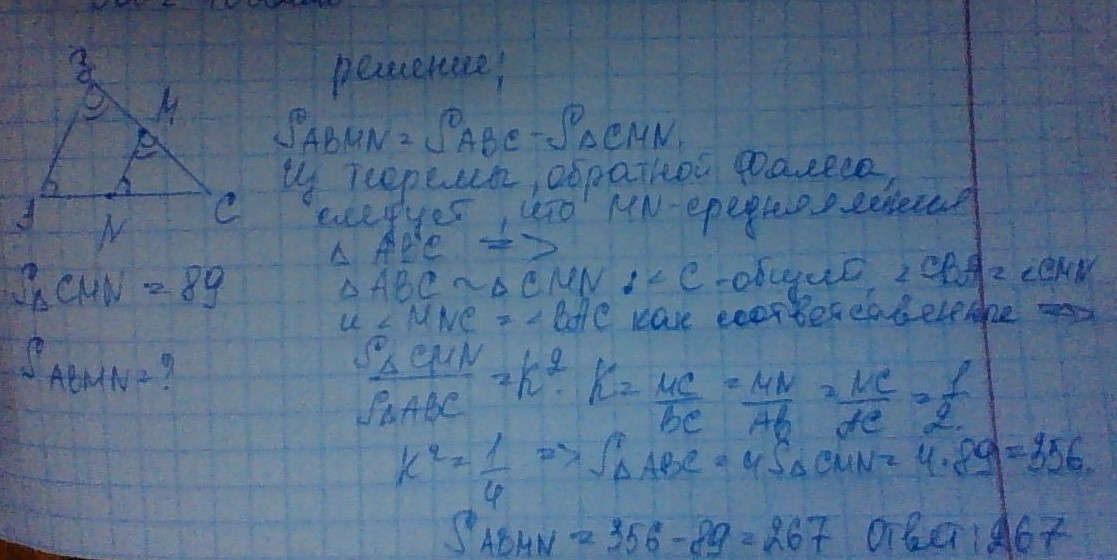 решение;
B
M
A
N
C
S ABMN = S ABC - S△CMN.
Из теоремы, обратной Фалеса,
следует, что MN-средняя линия
△ ABC =>
S△CMN = 89
△ABC ~ △CMN: ∠C - общий, ∠CBA = ∠CMN
и ∠MNC = ∠BAC как соответственные =>
S ABMN = ?
S△CMN / S△ABC = K². K = MC / BC = MN / AB = NC / AC = 1 / 2.
K² = 1 / 4 => S△ABC = 4S△CMN = 4·89 = 356.
S ABMN = 356 - 89 = 267 Ответ: 267